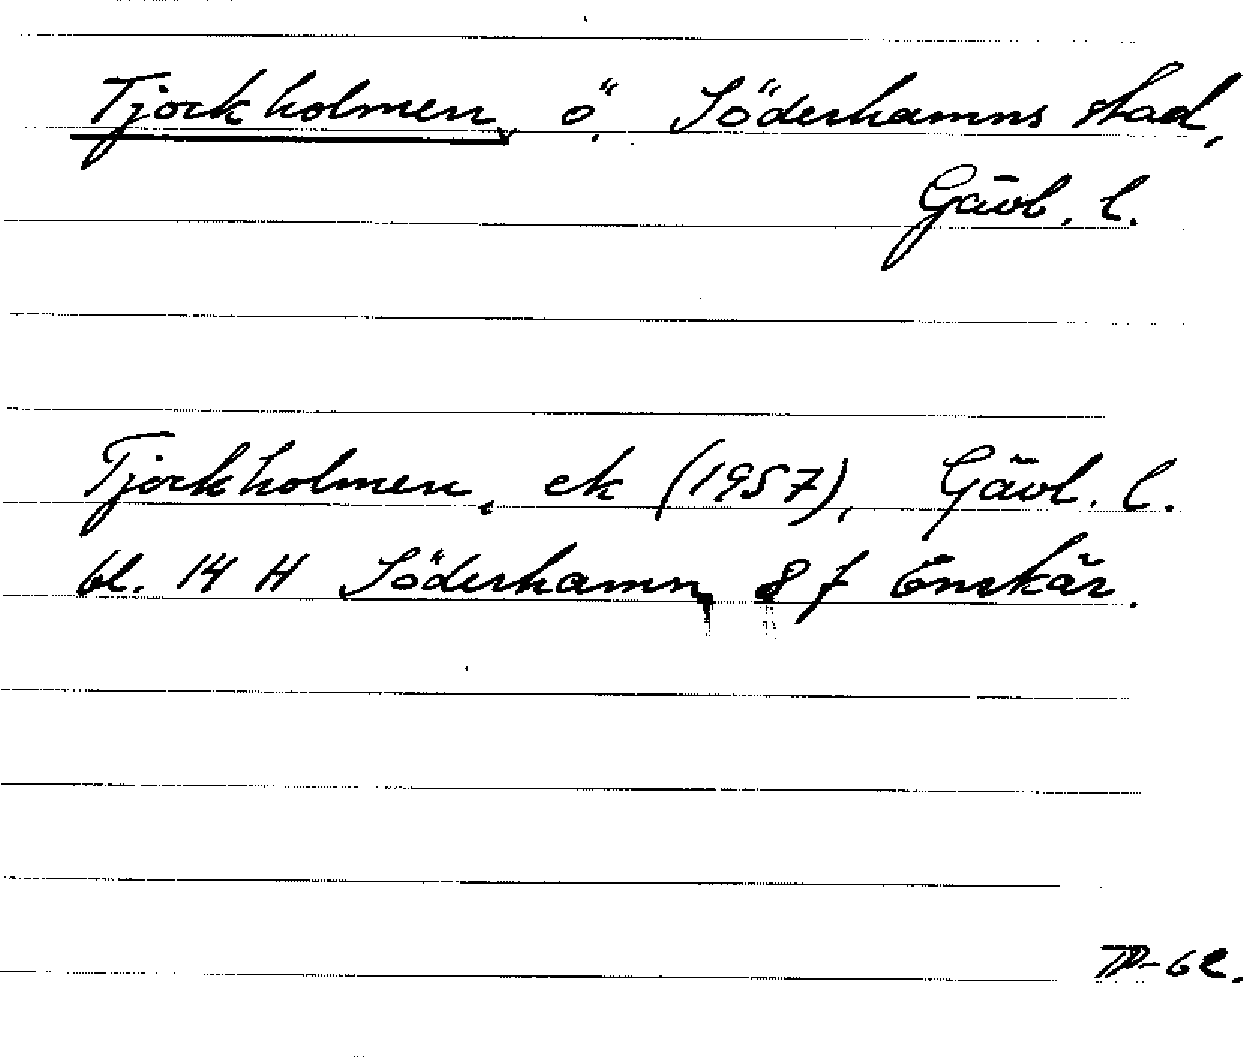 Tjockholmen, ö, Söderhamns stad,
Gävl. l.
Tjockholmen, ek (1957), Gävl. l.
bl. 14 H Söderhamn, 8 f Enskär.